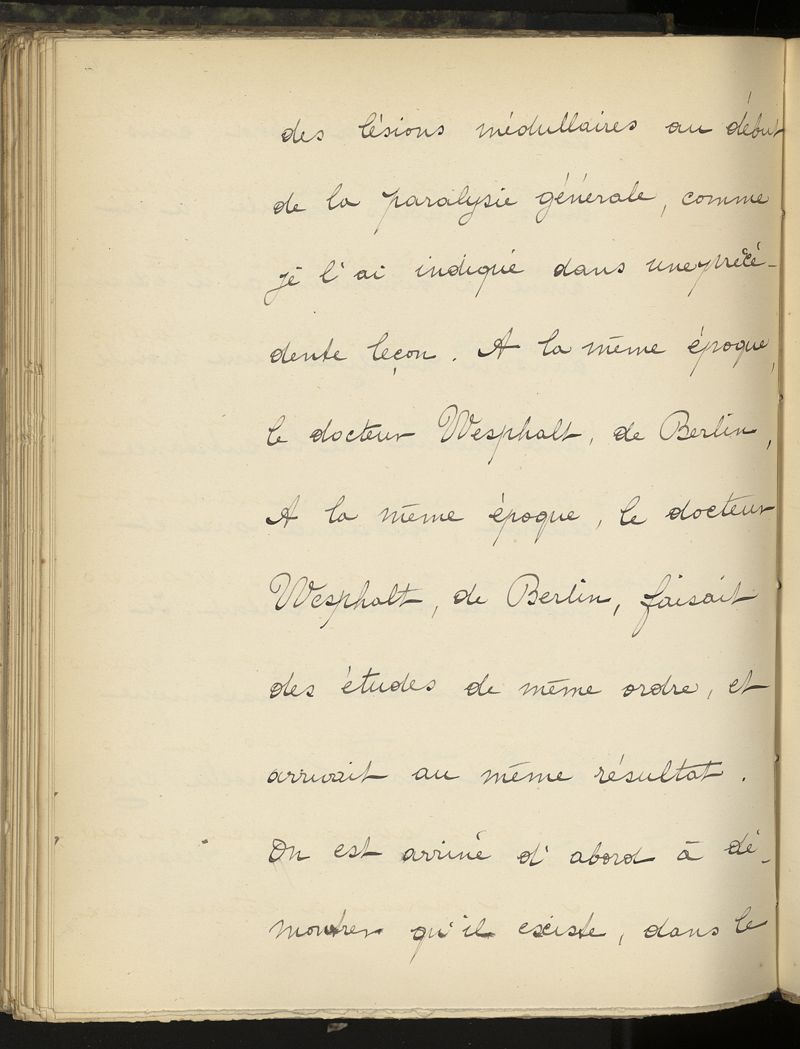 des lésions médullaires au début
de la paralysie générale, comme
je l'ai indiqué dans une précé-
dente leçon. A la même époque,
le docteur Wesphalt, de Berlin,
A la même époque, le docteur
Wesphalt, de Berlin, faisait
des études de même ordre, et
arrivait au même résultat.
On est arrivé d'abord à dé-
montrer qu'il existe, dans le